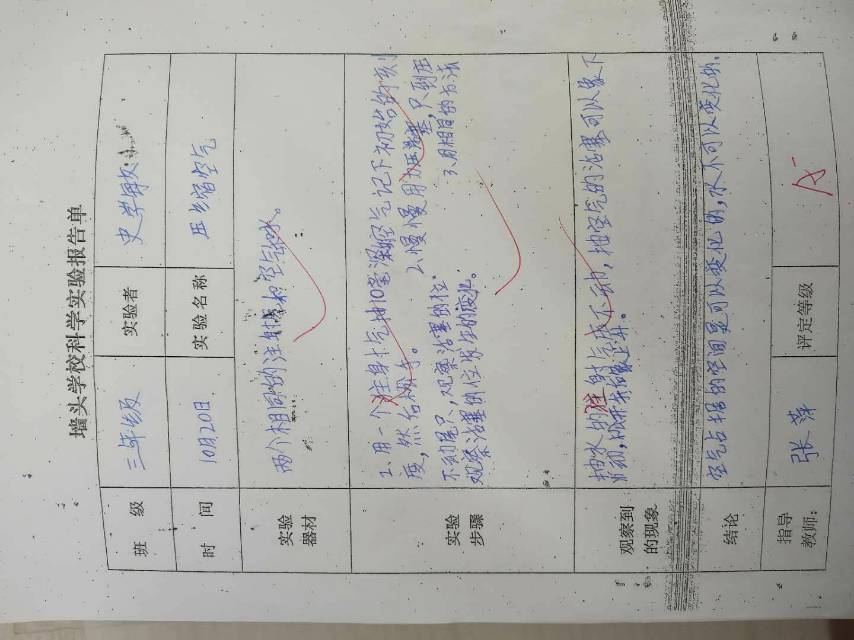 墙头学校科学实验报告单
班 级 三年级 实验者 史学
时 间 10月20日 实验名称 压缩空气
实验器材 两个相同的注射器和空气和水。
实验步骤
1、用一个注身十气抽10毫 空气记下初始的刻
度,然后 手。 2、慢慢用力压活塞,只到压
不到尾只,观察活塞的位。 3、用相目的方法
观察活塞的位 。
观察到的现象
抽水的注身气 不动,抽空气的活塞可以象下
上升。
结论 空气占据的空间是可以变化的,水不可以变化的。
指导教师: 张萍 评定等级 A-